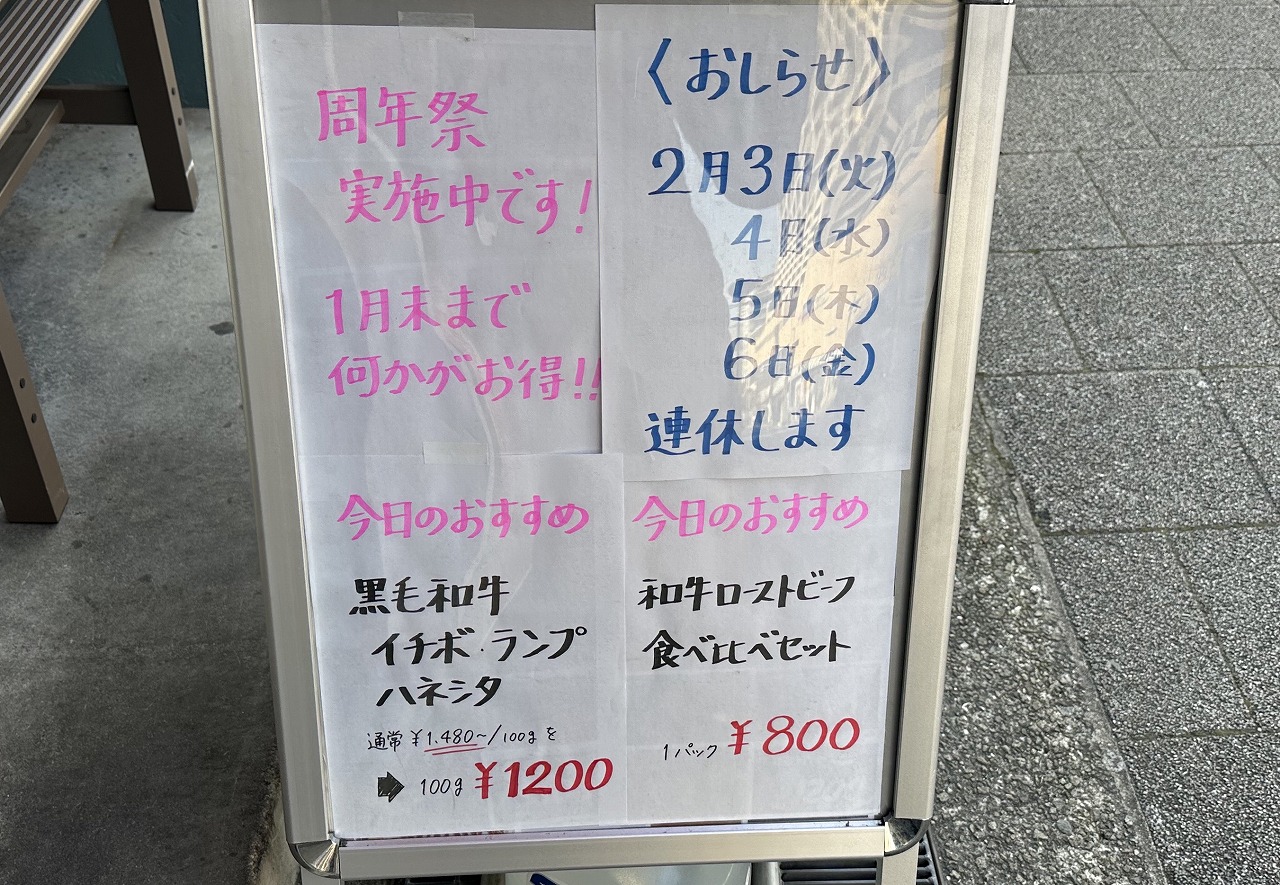 周年祭
実施中です!
1月末まで
何かがお得!!
〈おしらせ〉
2月3日(火)
4日(水)
5日(木)
6日(金)
連休します
今日のおすすめ
黒毛和牛
イチボ・ランプ
ハネシタ
通常 ¥1,480~/100gを
➡ 100g ¥1200
今日のおすすめ
和牛ローストビーフ
食べ比べセット
1パック ¥800